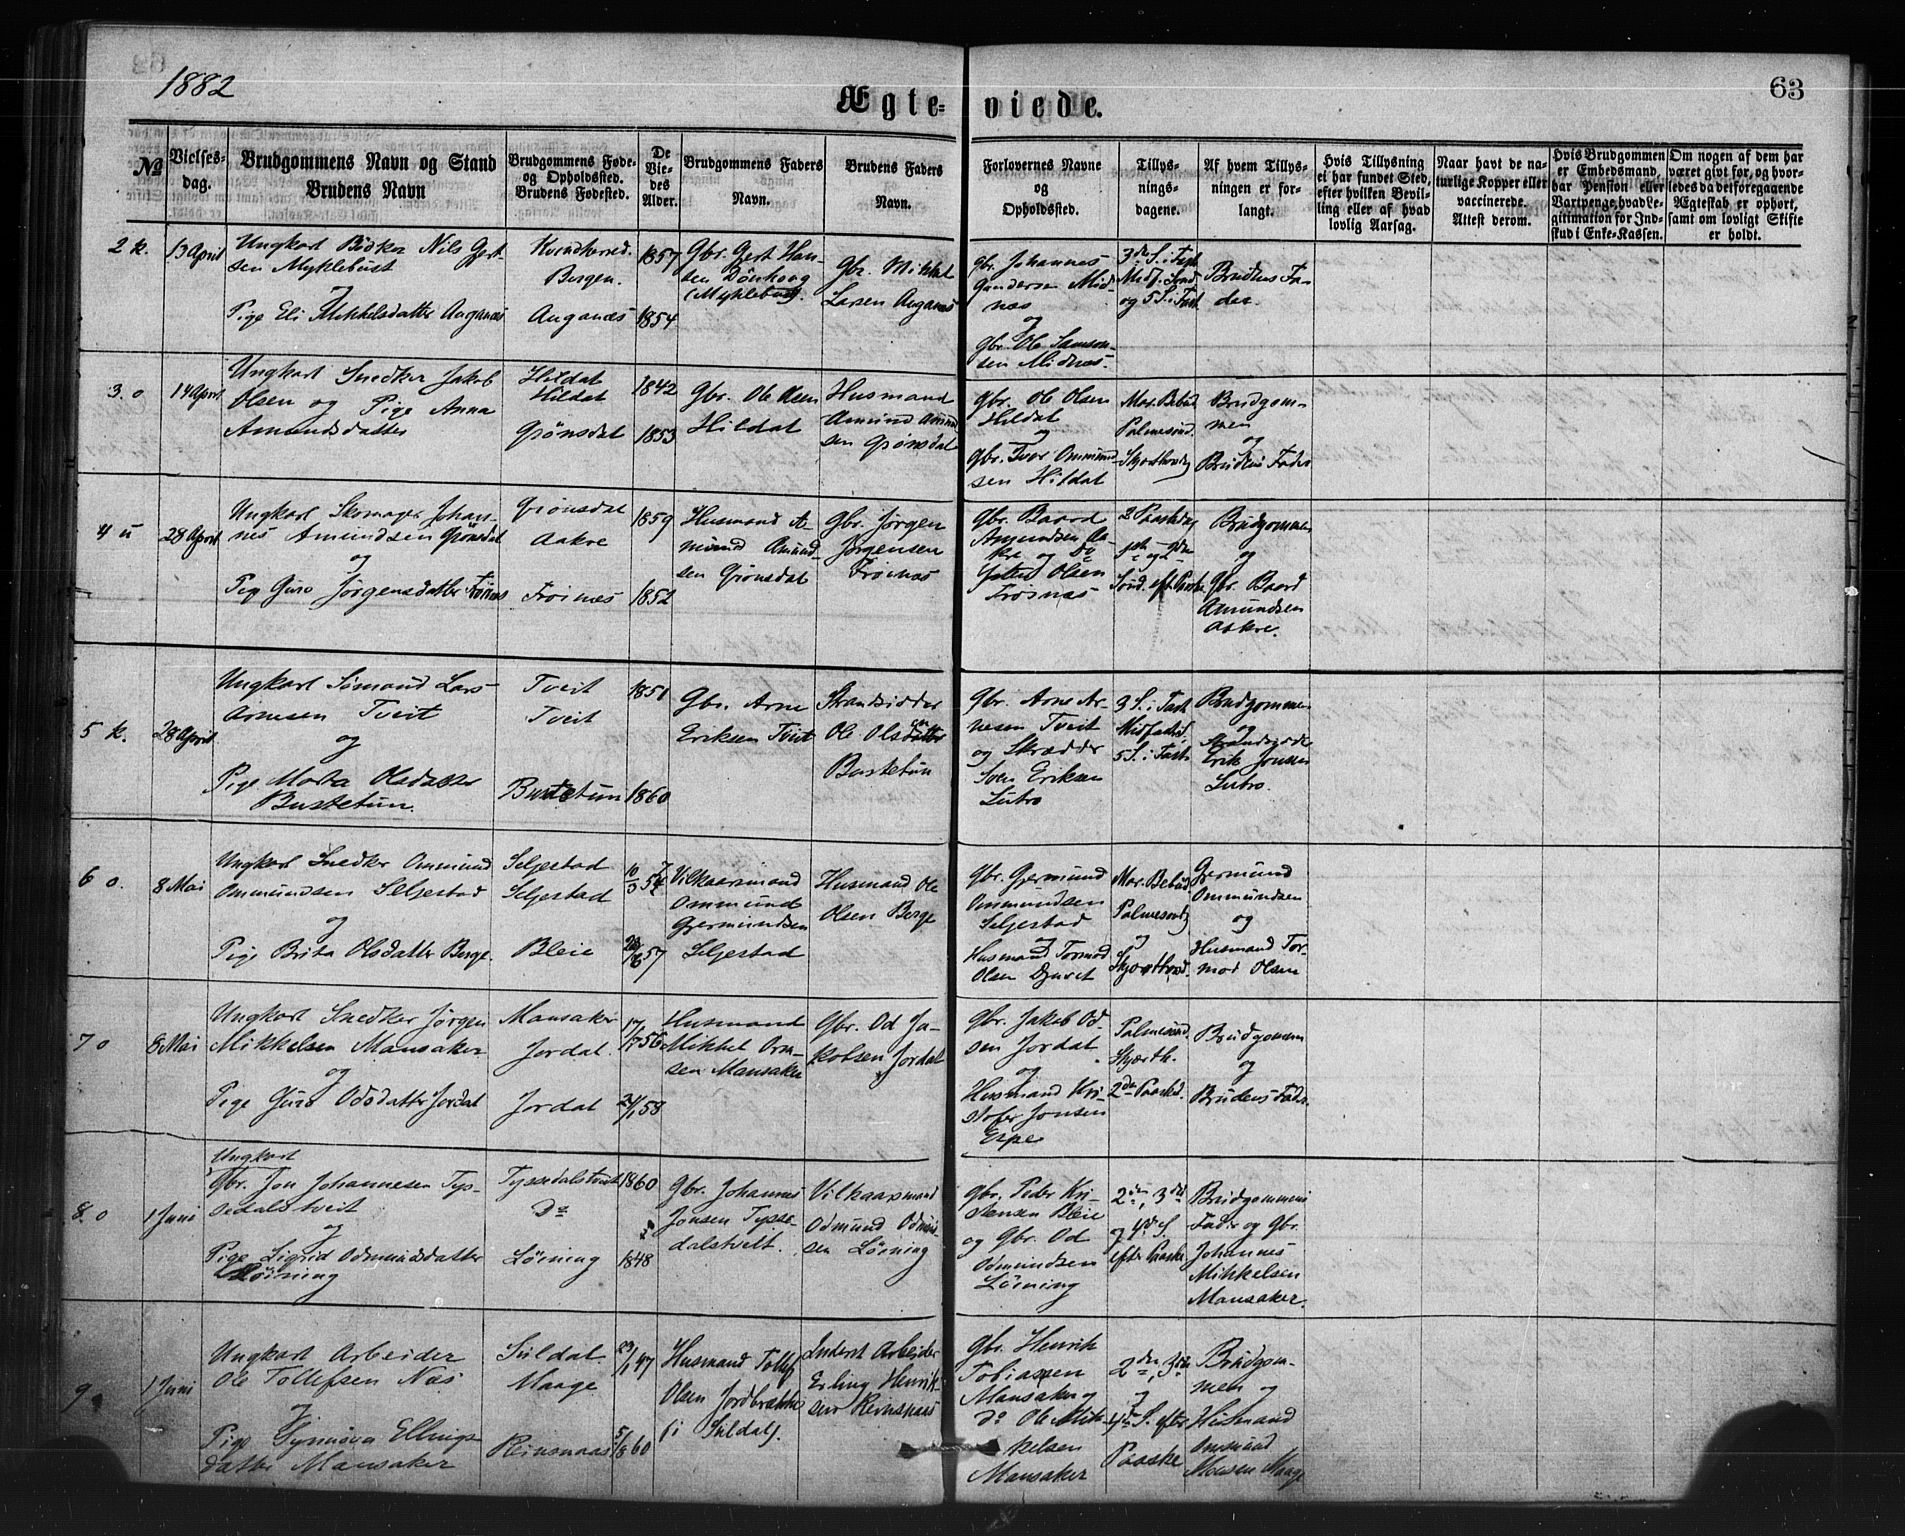 1882
63
Ægteviede.
№
Vielses-
dag.
Brudgommens Navn og Stand
Brudens Navn
Brudgommens Føde-
og Opholdssted.
Brudens Fødested.
De
Vie-
des
Alder.
Brudgommens Faders
Navn.
Brudens Faders
Navn.
Forlovernes Navne
og
Opholdssted.
Tillys-
nings-
dagene.
Af hvem Tillys-
ningen er for-
langt.
Hvis Tillysning
ei har fundet Sted,
efter hvilken Bevil-
ling eller af hvad
lovlig Aarsag.
Naar havt de na-
turlige Kopper eller
vaccinerede.
Attest derom.
Hvis Brudgommen
er Embedsmand,
har Pension eller
Vartpenge, hvad Le-
gitimation for Ind-
skud i Enke-Kassen.
Om nogen af dem har
været givt før, og hvor-
ledes da det foregaaende
Ægteskab er ophørt,
samt om lovligt Skifte
er holdt.
2 k.
13 April
Ungkarl Bødker Nils Gjert-
sen Myklebust
og
Pige Eli Mikkelsdatter Auganæs
Kvindherred
Bergen.
Auganæs
1857
1854
Gbr. Gert Han-
sen Dönhoug
(Myklebust).
Gbr. Mikkel
Larsen Auganæs
Gbr. Johannes
Gundersen Mid-
næs
og
Gbr. Ole Samson-
sen Midnæs.
3die S. i Fast
Midf. Sønd
og 5 S. i Fast
Brudens Fa-
der.
3. o
14 April
Ungkarl Snedker Jakob
Olsen og Pige Anna
Amundsdatter
Hildal
Hildal
Grönsdal
1842
1853
Gbr. Ole Olsen
Hildal
Husmand
Amund Amund-
sen Grönsdal
Gbr. Ole Olsen
Hildal
og
Gbr. Ivar Ommund-
sen Hildal
Mar. Bebud
Palmesønd.
Skjærthorsdg
Brudgom-
men
og
Brudens Fader
4 u
28 April
Ungkarl Skomager Johan-
nes Amundsen Grönsdal
og
Pige Guro Jørgensdatter Fröinæs
Grönsdal
Aakre
Fröinæs
1859
1852
Husmand A-
mund Amund-
sen Grönsdal
Gbr. Jørgen
Jørgensen
Fröinæs
Gbr. Baard
Amundsen Aa-
kre og Do
Olsen
Fröinæs
2 Paaskedag
1ste og 2den
Sønd. eft Paaske
Brudgommen
og
Gbr. Baard
Amundsen
Aakre.
5 k.
28 April
Ungkarl Simond Lars
Arnesen Tveit
og
Pige Marta Olsdatter
Bustetun.
Tveit
Tveit
Bustetun
1851
1860
Gbr. Arne
Eriksen Tveit
Strandsidder
Ole Olsen
Bustetun
Gbr. Arne Ar-
nesen Tveit
og Skrædder
Sven Eriksen
Lutro
3 S. i Fast
Midfastsd.
5 S. i Fast
Brudgommen
og
Strandsidder
Erik Jonsen
Lutro.
6 o.
8 Mai
Ungkarl Snedker Ommund
Ommundsen Seljestad
og
Pige Brita Olsdatter Berge.
Seljestad
Seljestad
Bleie
10/3 54
57
Vilkaarsmand
Ommund
Gjermundsen
Seljestad
Husmand Ole
Olsen Berge
Gbr. Gjermund
Ommundsen
Seljestad
og
Husmand Tormod
Olsen Djuvet
Mar. Bebud.
Palmesøndg
og
Skjærthorsd.
Gjermund
Ommundsen
og
Husmand Tor-
mod Olsen
7 o
8 Mai
Ungkarl Snedker Jørgen
Mikkelsen Mansaker
og
Pige Guro Odsdatter Jordal
Mansaker
Jordal.
Jordal
17/7 56
24/1 58
Husmand
Mikkel Orm-
sen Mansaker
Gbr. Od Ja-
kobsen Jordal
Gbr. Jakob Od-
sen Jordal
og
Husmand Kri-
stofer Jonsen
Eipe
Palmesønd.
Skjærth.
2den Paaskd.
Brudgommen
og
Brudens Fader.
8. o
1 Juni
Ungkarl
Gbr. Jon Johannesen Tys-
sedalstveit
og
Pige Sigrid Odmundsdatter
Löining
Tyssedalstveit
Do
Löining
1860
1848
Gbr. Johannes
Jonsen Tysse-
dalstveit.
Vilkaarsmand
Odmund Odmund-
sen Löining
Gbr. Peder Kri-
stensen Bleie
og Gbr. Od
Odmundsen
Löining
2den, 3die
og 4de S.
efter Paaske
Brudgommens
Fader og Gbr.
Johannes
Mikkelsen
Mansaker.
9 o
1 Juni
Ungkarl Arbeider
Ole Tollefsen Næs
og
Pige Synnöva Ellings-
datter Mansaker
Suldal
Maage
Reinsnaas
23/1 47
5/8 60
Husmand Tollef
Olsen Jordbrække
(i Suldal).
Inderst Arbeider
Erling Henrik-
sen Reinsnaas
Gbr. Henrik
Tobiassen
Mansaker og
do Ole Mik-
kelsen
Mansaker
2den, 3die
og
4de S. efter
Paaske
Brudgom-
men og
Husmand
Ommund
Moesen Maage